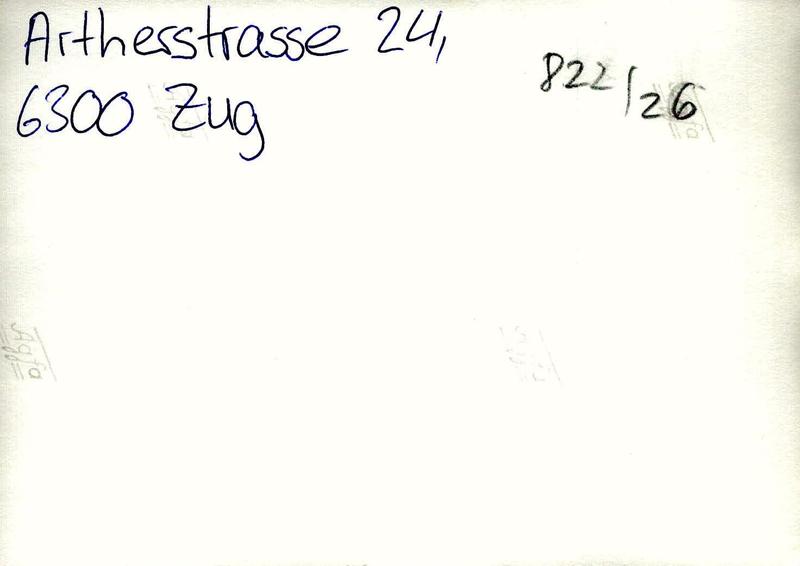 Artherstrasse 24,
6300 Zug
822/26
Agfa